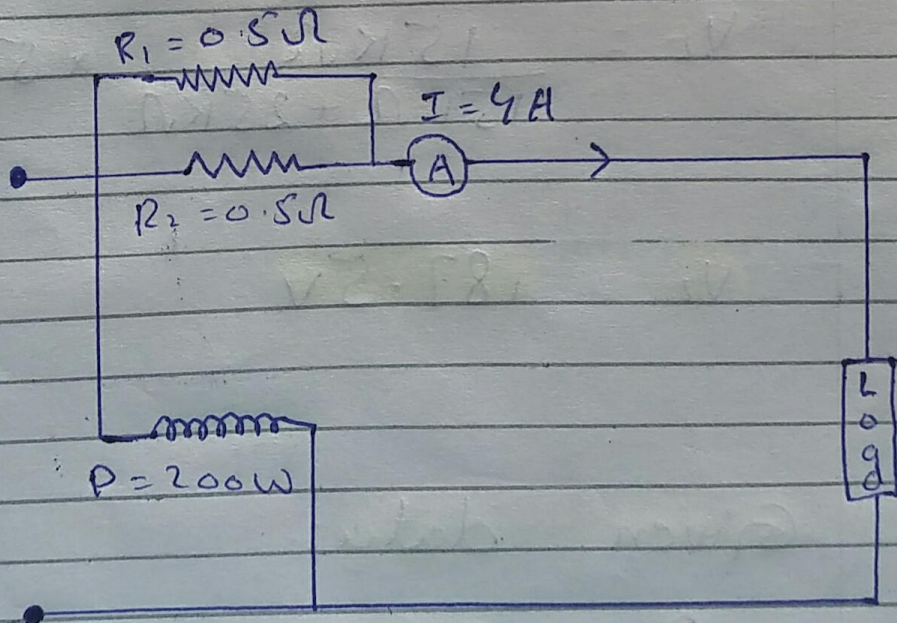 R₁ = 0.5Ω
I = 4A
A
R₂ = 0.5Ω
P = 200W
Load